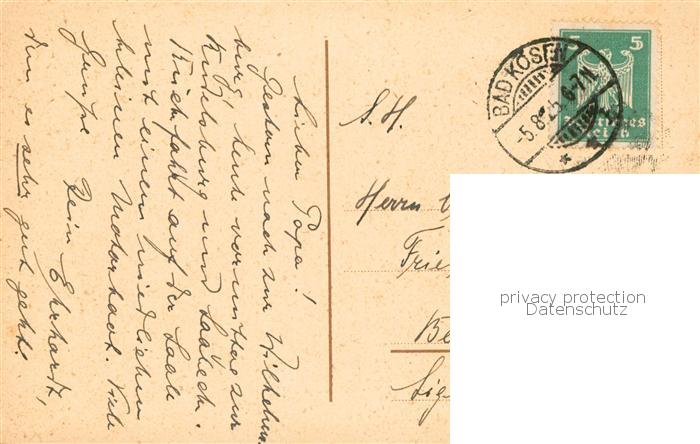 Lieber Papa!
Gestern noch zur Wilhelms-
burg, heute vormittag zur
Rudelsburg und Saaleck.
Rückfahrt auf der Saale
mit einem niedlichen
kleinen Motorboot. Viele
Grüße Dein Ehrhardt,
dem es sehr gut geht.
S. H.
Herrn
Frie
Be
BAD KÖSEN
-5.8.25. 6-7N.
5 5
Deutsches
Reich
privacy protection
Datenschutz